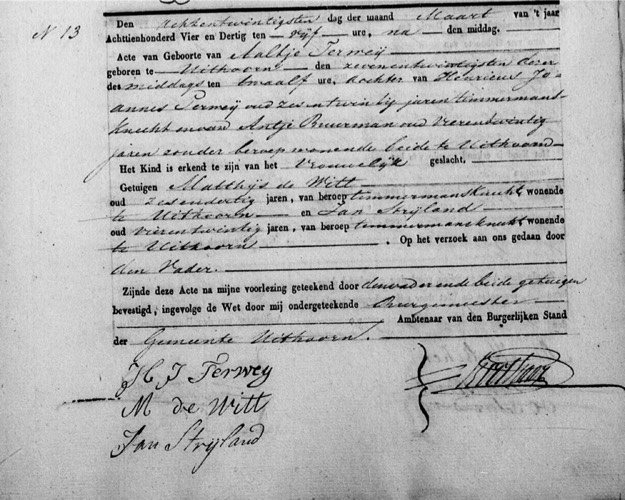 N 13
Den achzentwintigsten dag der maand Maart van 't jaar
Achttienhonderd Vier en Dertig ten vijf ure, na den middag.
Acte van Geboorte van Aaltje Terweij
geboren te Uithoorn den zevenentwintigsten dezer
des middags ten twaalf ure, dochter van Henricus Jo-
annes Terweij oud zesentwintig jaren timmermans-
knecht en van Antje Buurman oud vierentwintig
jaren zonder beroep wonende beide te Uithoorn
Het Kind is erkend te zijn van het Vrouwelijk geslacht.
Getuigen Matthijs de Witt
oud zesendertig jaren, van beroep timmermansknecht wonende
te Uithoorn en Jan Strijland
oud vierentwintig jaren, van beroep timmermansknecht wonende
te Uithoorn Op het verzoek aan ons gedaan door
den Vader.
Zijnde deze Acte na mijne voorlezing geteekend door den vader en de beide getuigen
bevestigd, ingevolge de Wet door mij ondergeteekende Burgemeester
Ambtenaar van den Burgerlijken Stand
der Gemeente Uithoorn.
H J Terwey
M de Witt
Jan Strijland